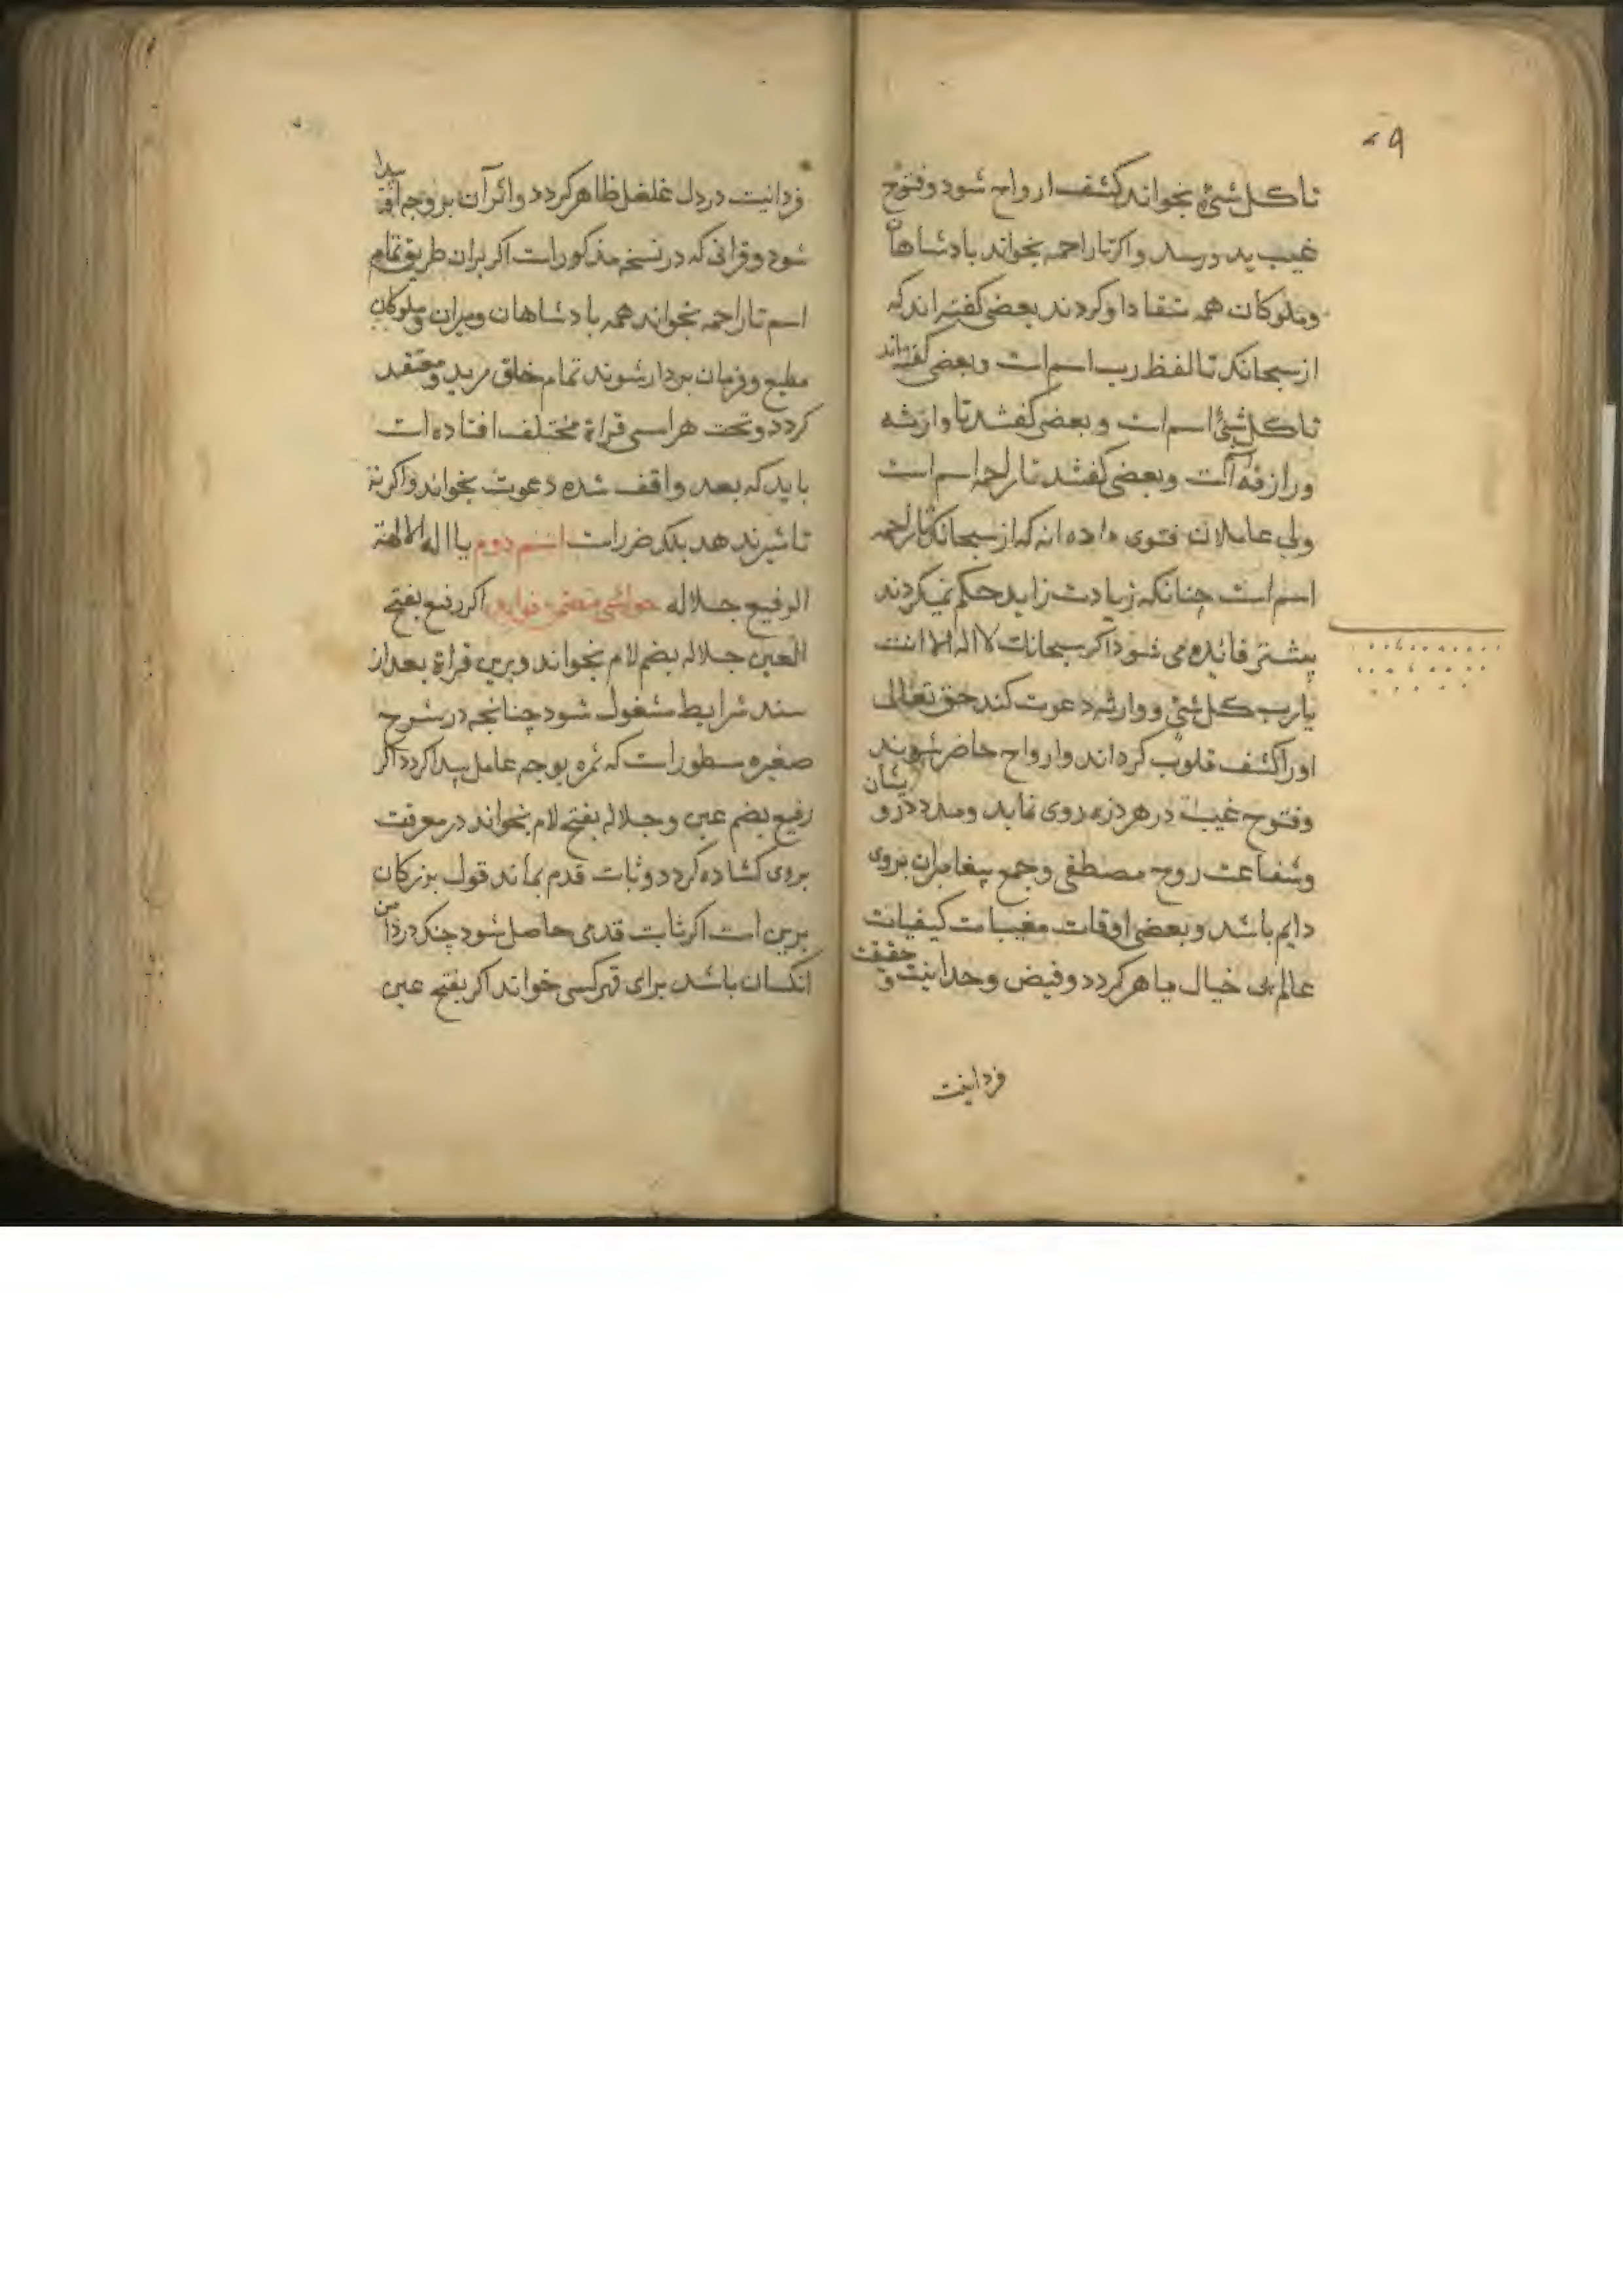 تا کل شیء بخواند کشف ارواح شود و فتوح
غیب پدو رسد و اکر تا راحمه بخواند بادشاهان
و ملوکان همه منقاد او کردند بعضی کفته اند که
از سبحانک تا لفظ رب اسم است و بعضی کفته اند
تا کل شیء اسم است و بعضی کفتند تا وارثه
و رازقه است و بعضی کفتند تا راحمه اسم است
ولی عاملان فتوی داده اند که از سبحانک تا راحمه
اسم است چنانکه زیادت زاید حکم نمیکردند
پیشتر فائده می شود اکر سبحانک لا اله الا انت
یا رب کل شیء و وارثه دعوت کند حق تعالی
اورا کشف قلوب کرداند و ارواح حاضر شوند
و فتوح غیب در هر ذره روی نماید و مدد درو یشان
و شفاعت روح مصطفی و جمع پیغامبران بروی
دایم باشد و بعضی اوقات مغیبات کیفیات
عالم بی خیال ماهر کردد و فیض وحدانیت و حقیقت
فردانیت
فردانیت در دل غلغل ظاهر کردد و اثر آن بر وجه پیدا
شود و قرائی که در نسخه مذکور است اکر بران طریق تمام
اسم تا راحمه بخواند همه بادشاهان و میران و ملوکان
مطیع و فرمان بردار شوند تمام خلق مرید و معتقد
کردد و تحت هر اسمی قراة مختلف افتاده است
باید که بعد واقف شده دعوت بخواند و اکر نه
تاثیر ندهد بلکه ضررست اسم دوم یا اله الالهة
الرفیع جلاله حواشی متضمن فواید اکر رفیع بفتح
العین جلاله بضم لام بخواند و برین قراة بعد از
سند شرایط مشغول شود چنانچه در شرح
صغیره مسطور است که ثمره بوجه عامل پیدا کردد اکر
رفیع بضم عین و جلاله بفتح لام بخواند در معرفت
بروی کشاده کردد و ثبات قدم بماند قول بزرکان
برین است اکر ثابت قدمی حاصل شود چنک در دامن
انکسان باشد برای قهر کسی خواند اکر بفتح عین